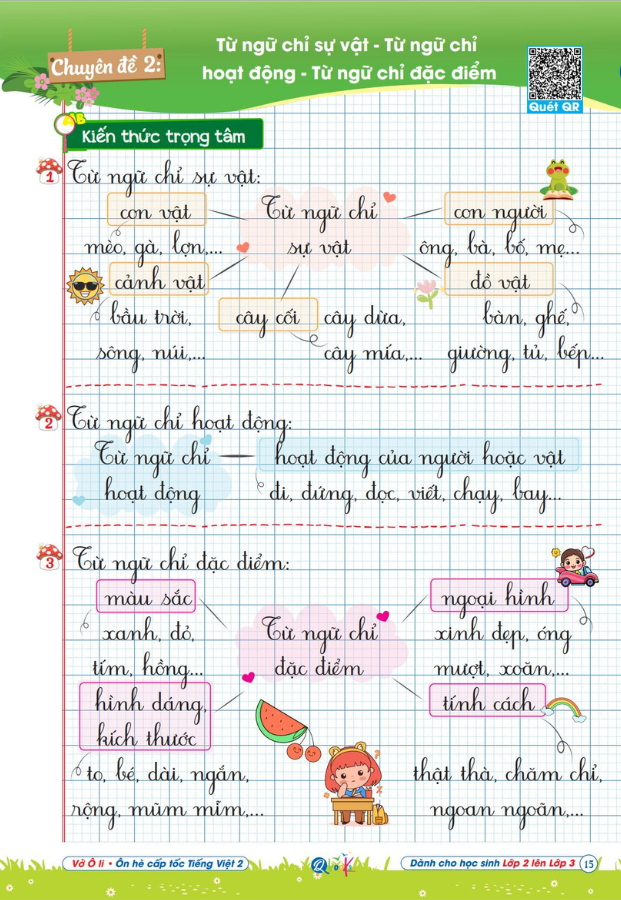 Chuyên đề 2:
Từ ngữ chỉ sự vật - Từ ngữ chỉ
hoạt động - Từ ngữ chỉ đặc điểm
Quét QR
Kiến thức trọng tâm
1 Từ ngữ chỉ sự vật:
Từ ngữ chỉ
sự vật
con vật
mèo, gà, lợn,...
con người
ông, bà, bố, mẹ...
cảnh vật
bầu trời,
sông, núi,...
cây cối
cây dừa,
cây mía,...
đồ vật
bàn, ghế,
giường, tủ, bếp...
2 Từ ngữ chỉ hoạt động:
Từ ngữ chỉ
hoạt động
hoạt động của người hoặc vật
đi, đứng, đọc, viết, chạy, bay...
3 Từ ngữ chỉ đặc điểm:
Từ ngữ chỉ
đặc điểm
màu sắc
xanh, đỏ,
tím, hồng...
ngoại hình
xinh đẹp, óng
mượt, xoăn,...
hình dáng,
kích thước
to, bé, dài, ngắn,
rộng, mũm mĩm,...
tính cách
thật thà, chăm chỉ,
ngoan ngoãn,...
Vở Ô li • Ôn hè cấp tốc Tiếng Việt 2
Dành cho học sinh Lớp 2 lên Lớp 3 15